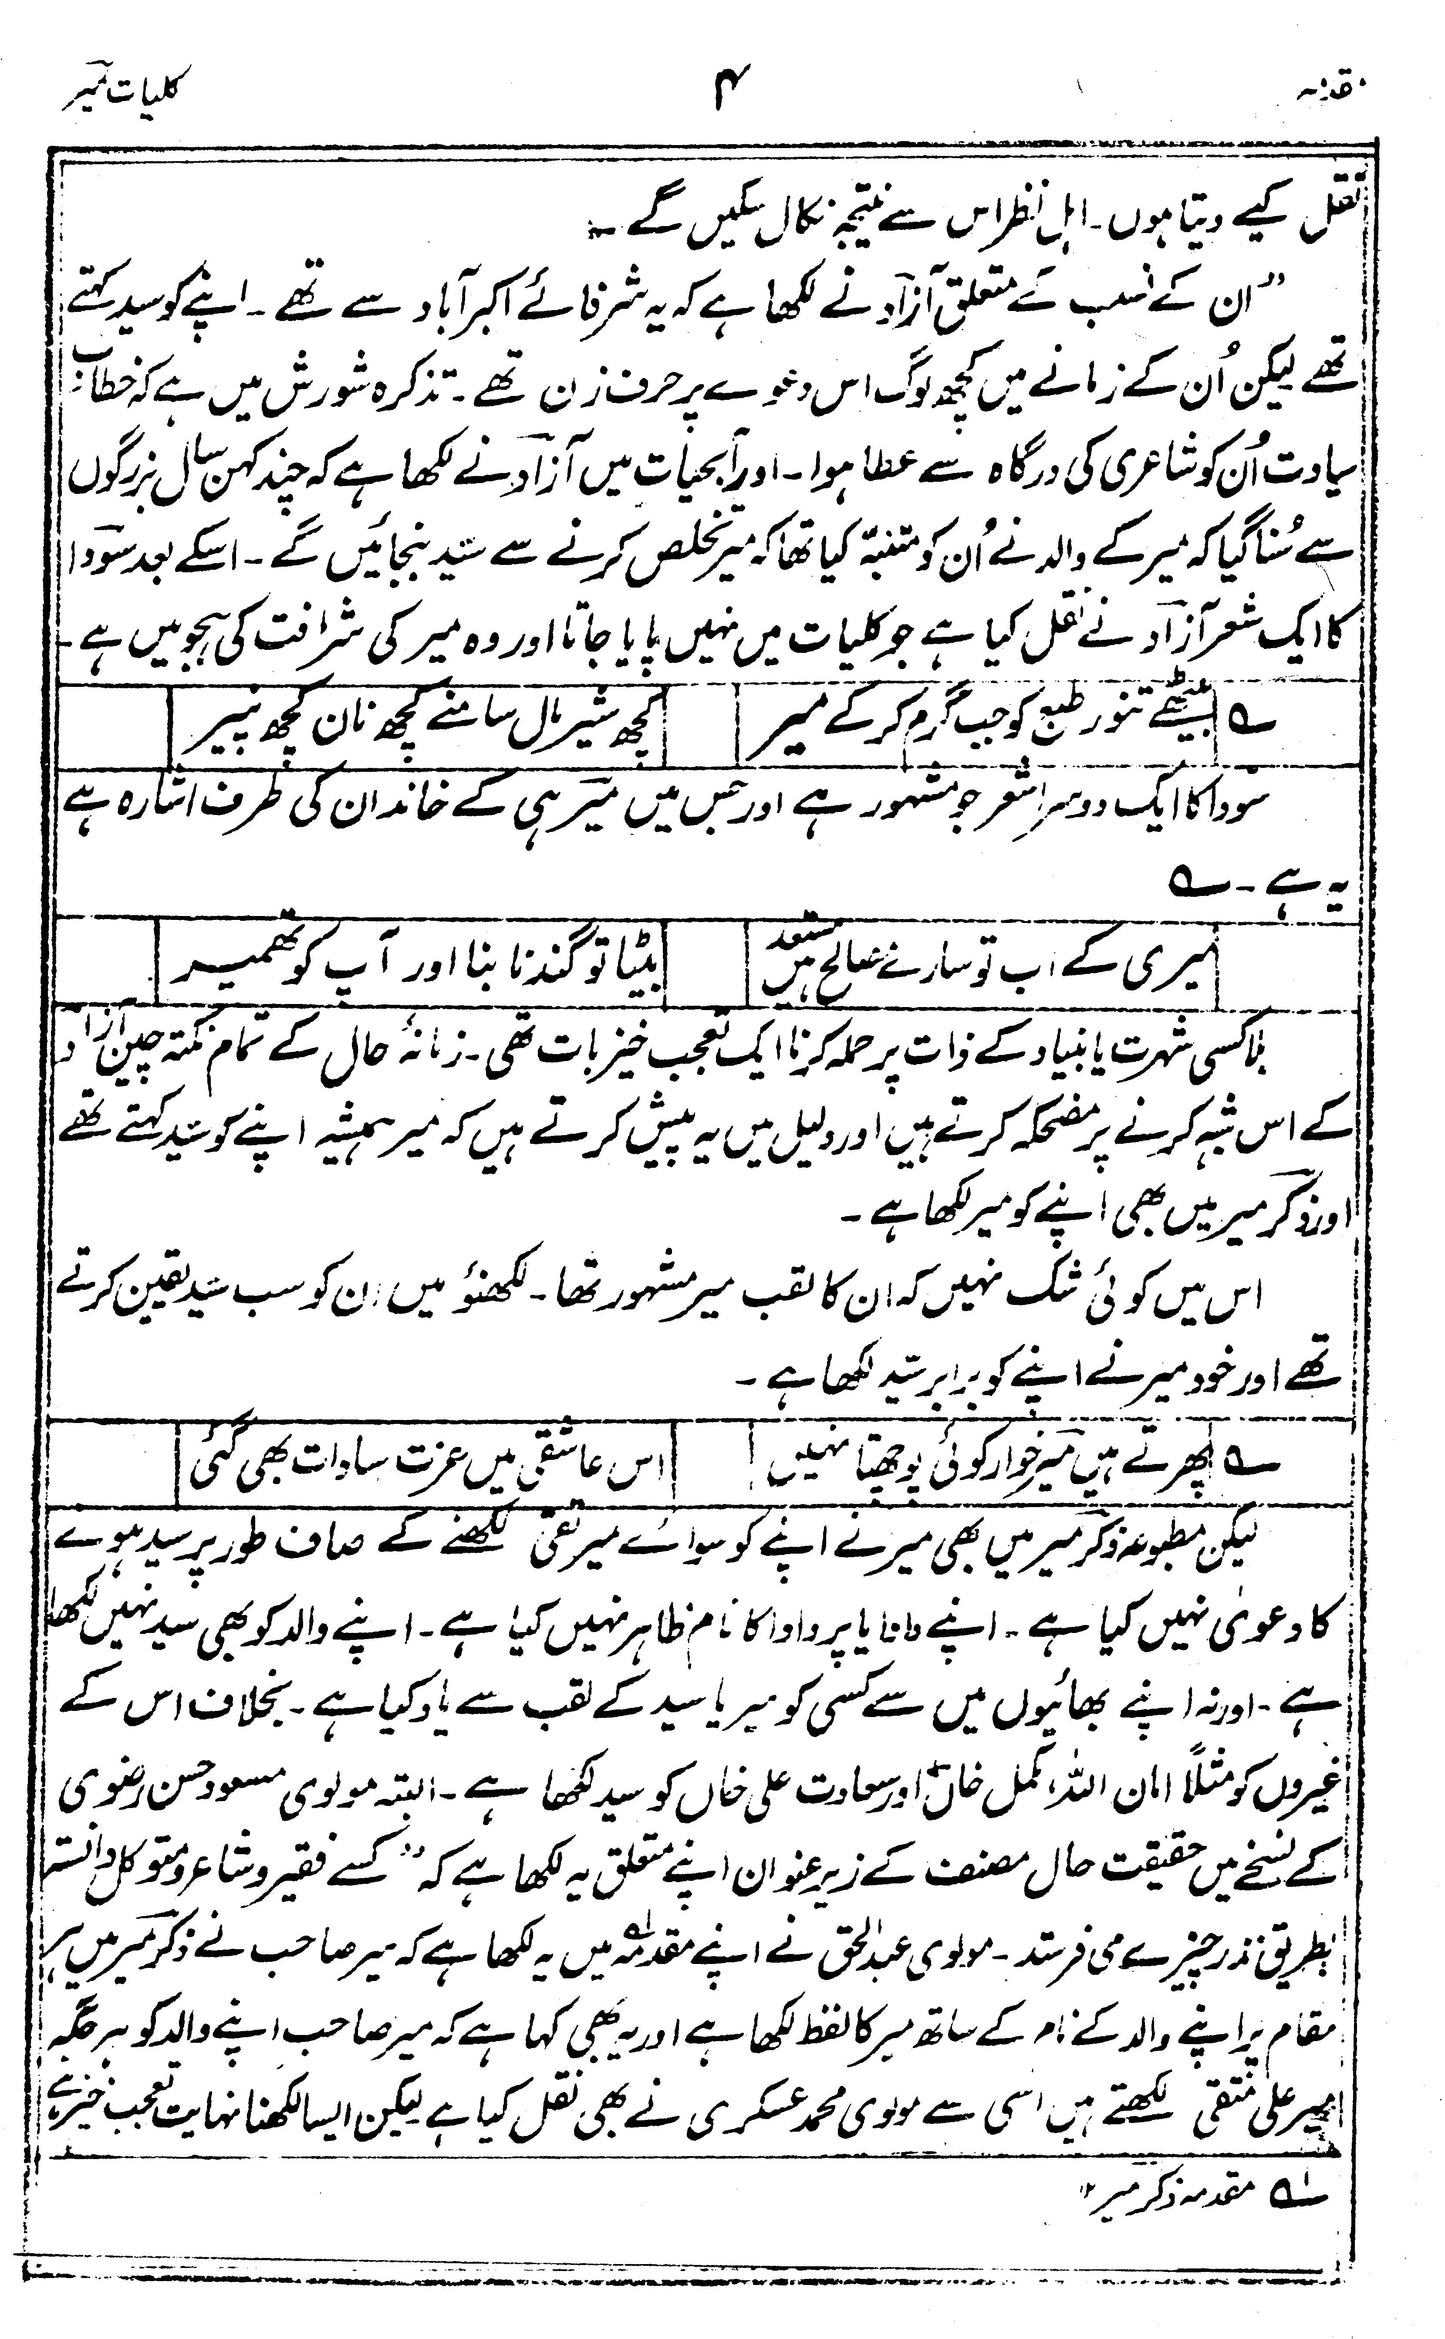 مقدمہ ۴ کلیات میر
نقل کیے دیتا ہوں۔ اہل نظر اس سے نتیجہ نکال سکیں گے ۔
"ان کے نسب کے متعلق آزاد نے لکھا ہے کہ یہ شرفائے اکبر آباد سے تھے ۔ اپنے کو سید کہتے
تھے لیکن اُن کے زمانے میں کچھ لوگ اس دعوے پر حرف زن تھے ۔ تذکرہ شورش میں ہے کہ خطاب
سیادت اُن کو شاعری کی درگاہ سے عطا ہوا ۔ اور آبحیات میں آزاد نے لکھا ہے کہ چند کہن سال بزرگوں
سے سُنا گیا کہ میر کے والد نے اُن کو متنبّہ کیا تھا کہ میر تخلص کرنے سے سیّد بنجائیں گے ۔ اسکے بعد سودا
کا ایک شعر آزاد نے نقل کیا ہے جو کلیات میں نہیں پایا جاتا اور وہ میر کی شرافت کی ہجو میں ہے ۔
؎ بیٹھے تنور طبع کو جب گرم کر کے میر کچھ شیرمال سامنے کچھ نان کچھ پنیر
سودا کا ایک دوسرا شعر جو مشہور ہے اور جس میں میر ہی کے خاندان کی طرف اشارہ ہے
یہ ہے ۔ ؎
میری کے اب تو سارے مصالح ہیں مستعد بیٹا تو گندنا بنا اور آپ کو تھمیر
بلا کسی شہرت یا بنیاد کے ذات پر حملہ کرنا ایک تعجب خیز بات تھی ۔ زمانۂ حال کے تمام نکتہ چین آزاد
کے اس شبہ کرنے پر مضحکہ کرتے ہیں اور دلیل میں یہ پیش کرتے ہیں کہ میر ہمیشہ اپنے کو سیّد کہتے تھے
اور ذکر میر میں بھی اپنے کو میر لکھا ہے ۔
اس میں کوئی شک نہیں کہ ان کا لقب میر مشہور تھا ۔ لکھنؤ میں ان کو سب سیّد یقین کرتے
تھے اور خود میر نے اپنے کو برابر سیّد لکھا ہے ۔
؎ پھرتے ہیں میر خوار کوئی پوچھتا نہیں اس عاشقی میں عزت سادات بھی گئی
لیکن مطبوعہ ذکر میر میں بھی میر نے اپنے کو سوائے میر تقی لکھنے کے صاف طور پر سید ہونے
کا دعویٰ نہیں کیا ہے ۔ اپنے دادا یا پردادا کا نام ظاہر نہیں کیا ہے ۔ اپنے والد کو بھی سید نہیں لکھا
ہے ۔ اور نہ اپنے بھائیوں میں سے کسی کو میر یا سید کے لقب سے یاد کیا ہے ۔ بخلاف اس کے
غیروں کو مثلاً امان اللہ، مکمل خاں اور سعادت علی خاں کو سید لکھا ہے ۔ البتہ مولوی مسعود حسن رضوی
کے نسخے میں حقیقت حال مصنف کے زیر عنوان اپنے متعلق یہ لکھا ہے کہ "کسے فقیر و شاعر و متوکل دانستہ
بطریق نذر چیزے می فرستد ۔ مولوی عبدالحق نے اپنے مقدمہ ؎۱ میں یہ لکھا ہے کہ میر صاحب نے ذکر میر میں ہر
مقام پر اپنے والد کے نام کے ساتھ میر کا لفظ لکھا ہے اور یہ بھی کہا ہے کہ میر صاحب اپنے والد کو ہر جگہ
میر علی متقی لکھتے ہیں اسی سے مولوی محمد عسکری نے بھی نقل کیا ہے لیکن ایسا لکھنا نہایت تعجب خیز ہے
؎۱ مقدمہ ذکر میر